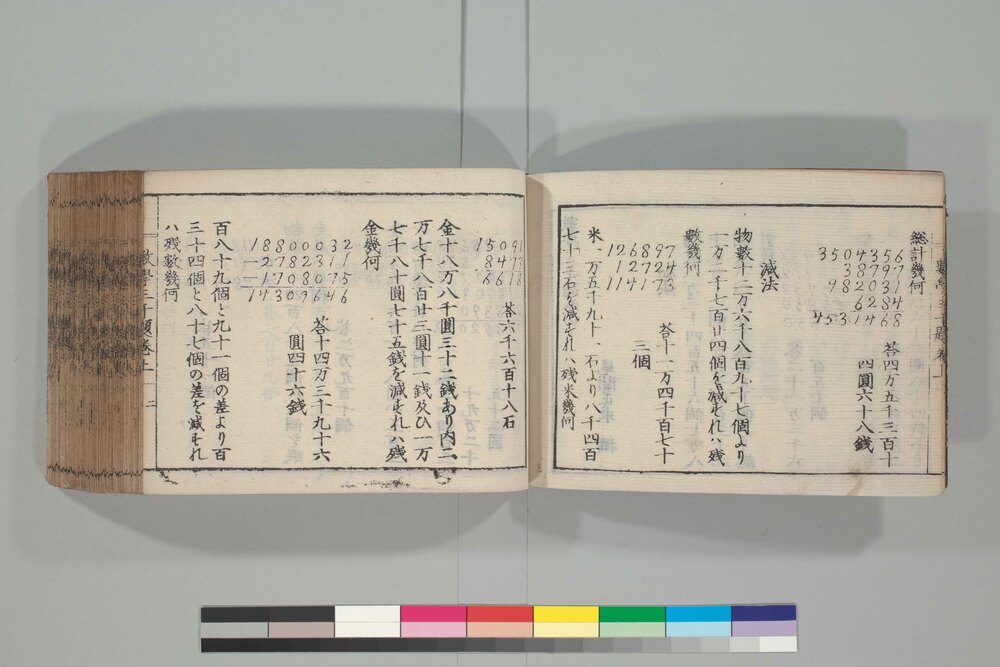 総計幾何
3504356
38797
9823
6028
4531468
荅四万五千三百十
四圓六十八銭
減法
物數十二万六千八百九十七個より
十万二千七百廿四個を減ずれハ残
數幾何
126897
12724
114173
荅十一万四千百七十
三個
米一万五千九十一石より八千四百
七十三石を減ずれハ残米幾何
15091
8473
6618
荅六千六百十八石
金十八万八千圓三十二銭あり内二
万七千八百廿三圓十一銭及ひ一万
七千八十圓七十五銭を減ずれハ残
金幾何
18800032
2782311
1708075
14309646
荅十四万三千九十六
圓四十六銭
百八十九個と九十一個の差より百
三十四個と八十七個の差を減ずれ
ハ残數幾何